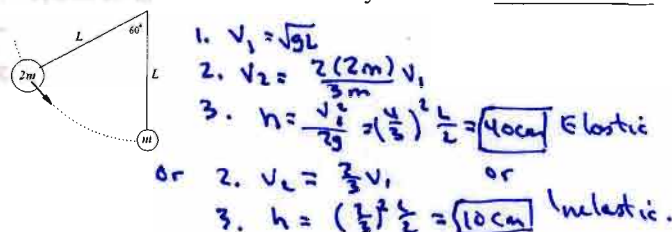 L
60°
L
2m
m
1. V₁ = √gL
2. V₂ = 2(2m)/3m V₁
3. h = V₂²/2g = (4/3)² L/2 = 40cm Elastic
or 2. V₂ = 2/3 V₁ or
3. h = (2/3)² L/2 = 10cm Inelastic.